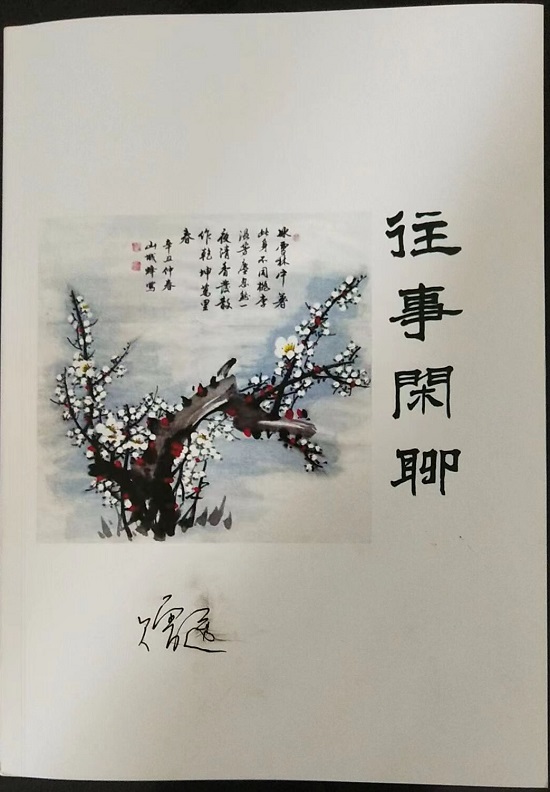 往事閑聊
冰雪林中著
此身不同桃李
混芳塵忽然一
夜清香發散
作乾坤萬里
春
辛丑仲春
山城